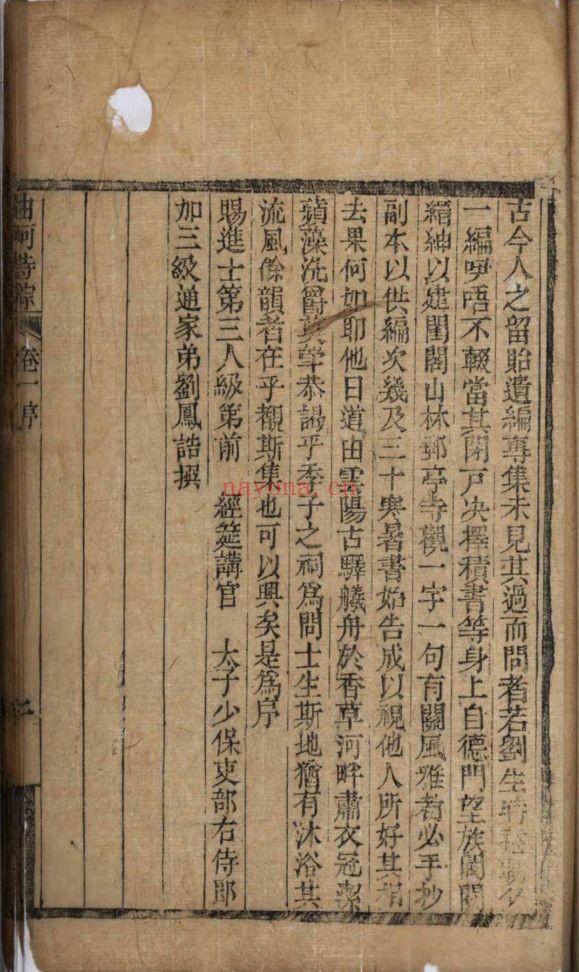 古今人之留貽遺編專集未見其過而問者若劉生
一編咿唔不輟當其閉戸决擇積書等身上自德門望族閥閱
縉紳以逮閨閤山林郵亭寺觀一字一句有關風雅者必手抄
副本以供編次幾及三十寒暑書始告成以視他人所好其相
去果何如耶他日道由雲陽古驛艤舟於香草河畔肅衣冠潔
蘋藻洗爵奠斝恭謁乎季子之祠爲問士生斯地猶有沐浴其
流風餘韻者在乎觀斯集也可以興矣是爲序
賜進士第三人級第前　經筵講官　太子少保吏部右侍郎
加三級通家弟劉鳳誥撰
曲阿詩綜　卷一序
nayona.cn